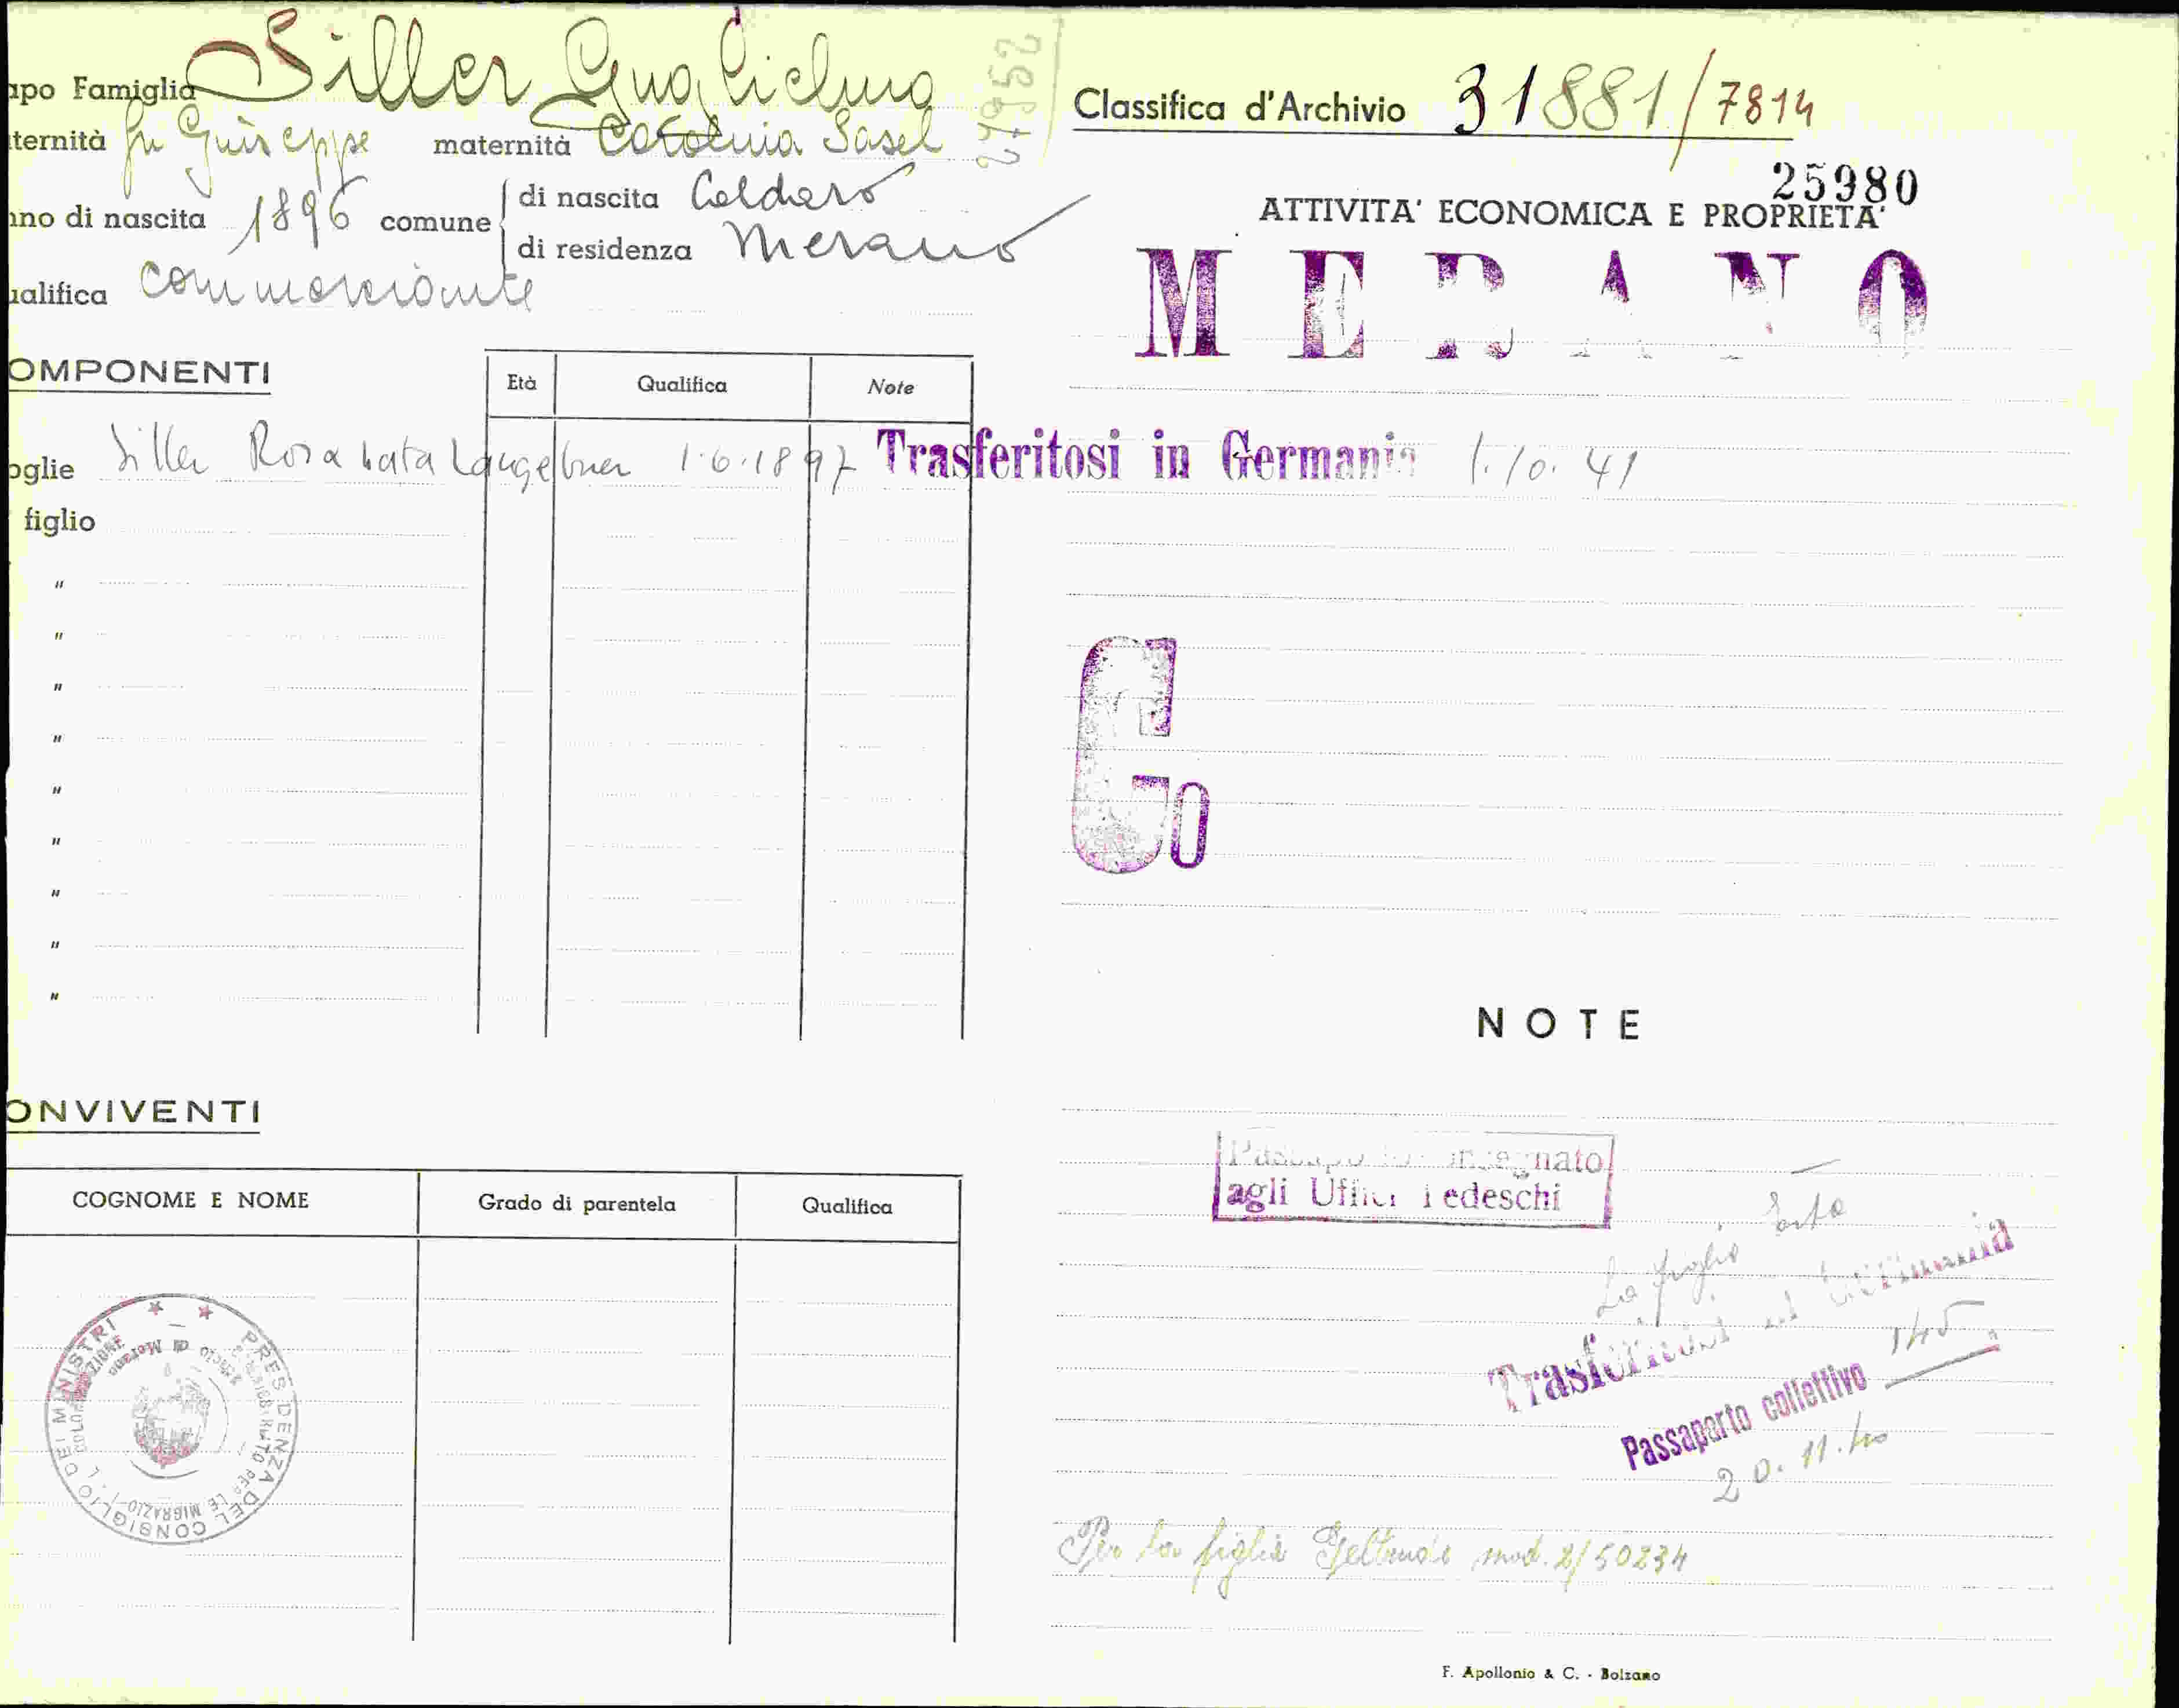 apo Famiglia Siller Guglielmo
ternità fu Giuseppe maternità Carolina Sasel
nno di nascita 1896 comune di nascita Caldaro
di residenza Merano
ualifica commerciante
27952
OMPONENTI
Età Qualifica Note
oglie Siller Rosa nata 1.6.1897
figlio
"
"
"
"
"
"
"
"
"
ONVIVENTI
COGNOME E NOME Grado di parentela Qualifica
PRESIDENZA DEL CONSIGLIO DEI MINISTRI
Classifica d'Archivio 31881/7814
25980
ATTIVITA' ECONOMICA E PROPRIETA'
MERANO
Trasferitosi in Germania 1.10.41
G0
NOTE
Passaporto consegnato
agli Uffici Tedeschi
La figlia
Trasferitosi in Germania
Passaporto collettivo 145
20.11.40
Per la figlia Geltrude mod. 2/50234
F. Apollonio & C. - Bolzano